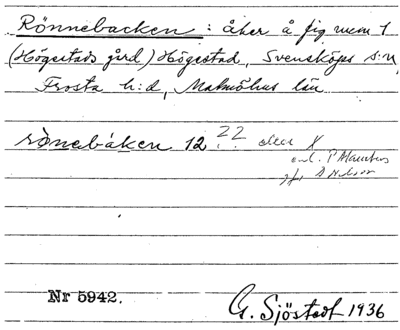 Rönnebacken: åker å fig num 1
(Högestads gård) Högestad, Svensköps s:n,
Frosta h:d, Malmöhus län
rònebáken 12 22 eller X
enl. P
A Nelson
Nr 5942.
G. Sjöstedt 1936